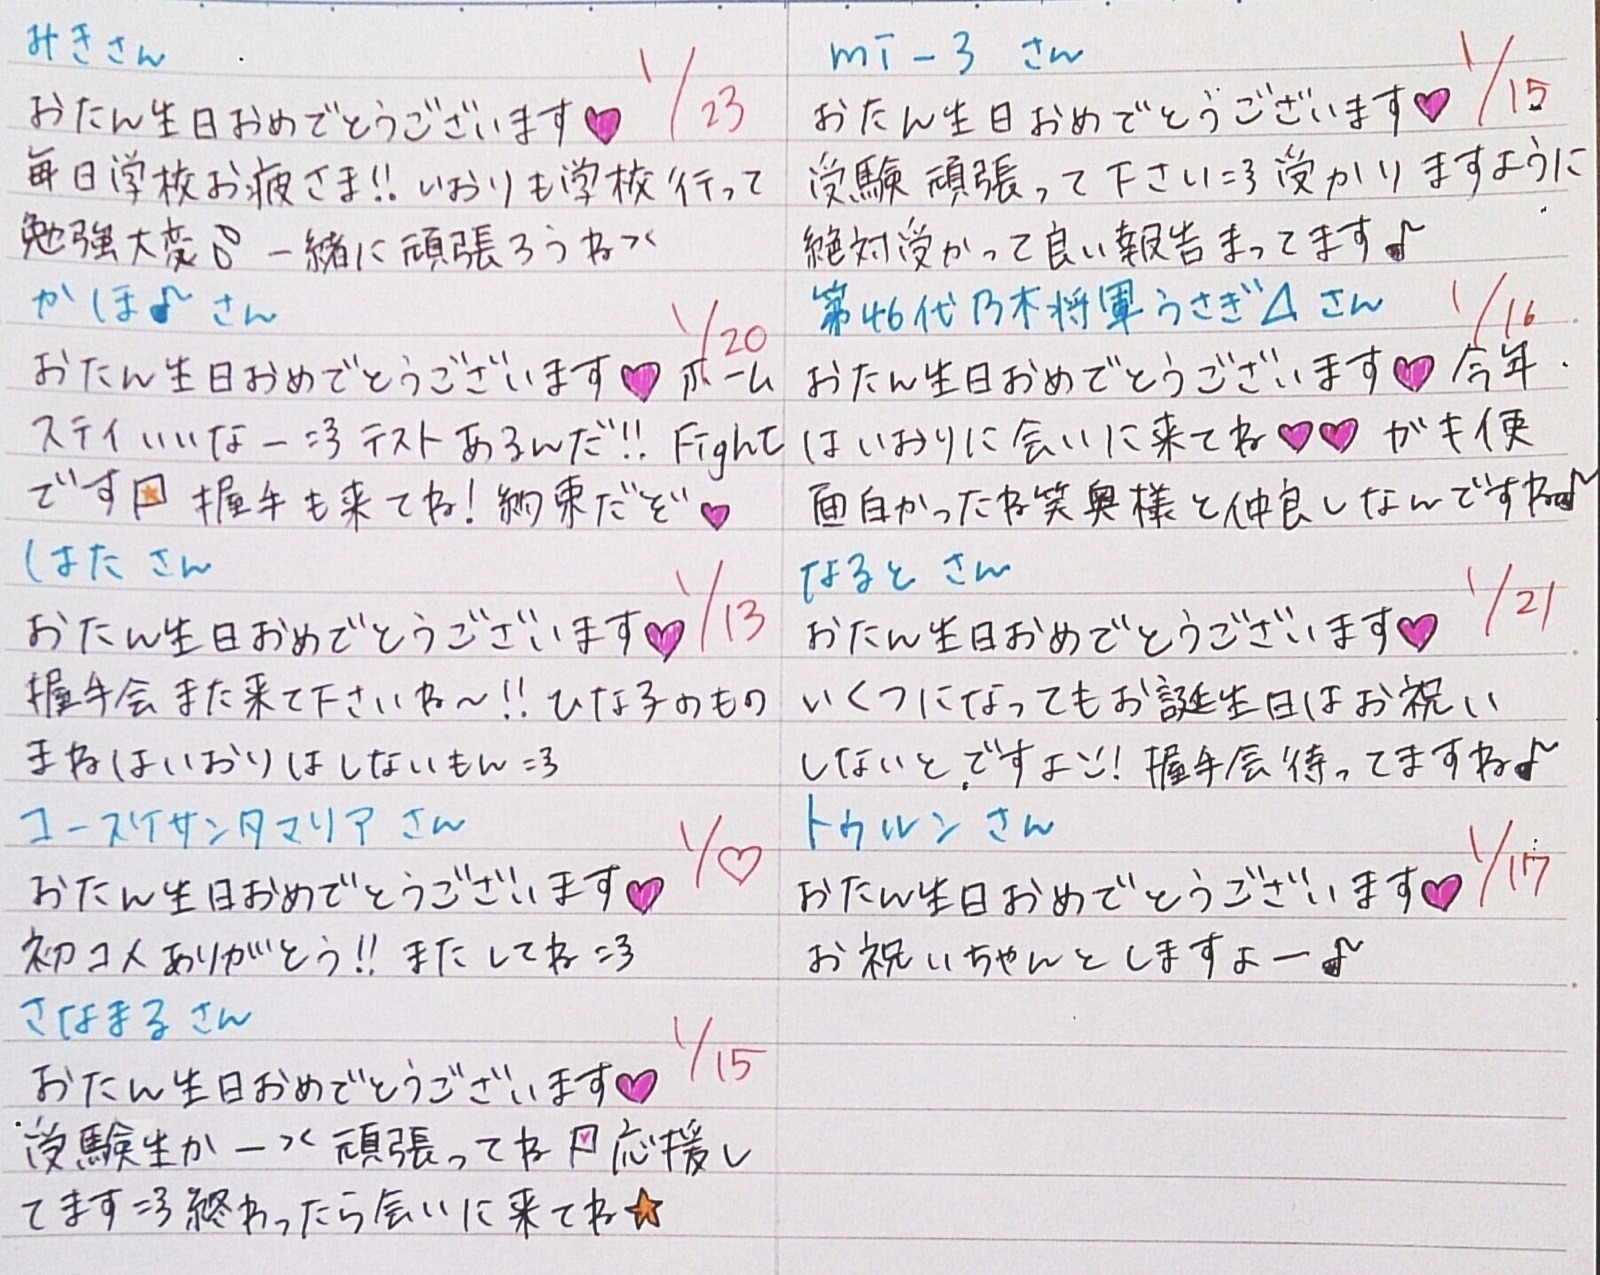 みきさん 1/23
おたん生日おめでとうございます♥
毎日学校お疲さま!! いおりも学校行って
勉強大変 一緒に頑張ろうね
かほ♪さん 1/20
おたん生日おめでとうございます♥ ホーム
ステイいいなー=3 テストあるんだ!! Fight
です 握手も来てね! 約束だぞ♥
しはた さん 1/13
おたん生日おめでとうございます♥
握手会また来て下さいね〜!! ひな子のもの
まねはいおりはしないもん=3
コースケサンタマリア さん 1/♡
おたん生日おめでとうございます♥
初コメありがとう!! またしてね=3
さなまるさん 1/15
おたん生日おめでとうございます♥
受験生かー 頑張ってね 応援し
てます=3 終わったら会いに来てね★
mi-3 さん 1/15
おたん生日おめでとうございます♥
受験 頑張って下さい=3 受かりますように
絶対受かって良い報告まってます♪
第46代乃木将軍うさぎ△さん 1/16
おたん生日おめでとうございます♥ 今年
はいおりに会いに来てね♥♥ がも使
面白かったね笑 奥様と仲良しなんですね♪
なると さん 1/21
おたん生日おめでとうございます♥
いくつになってもお誕生日はお祝い
しないと、ですよ! 握手会待ってますね♪
トゥルンさん 1/17
おたん生日おめでとうございます♥
お祝いちゃんとしますよー♪